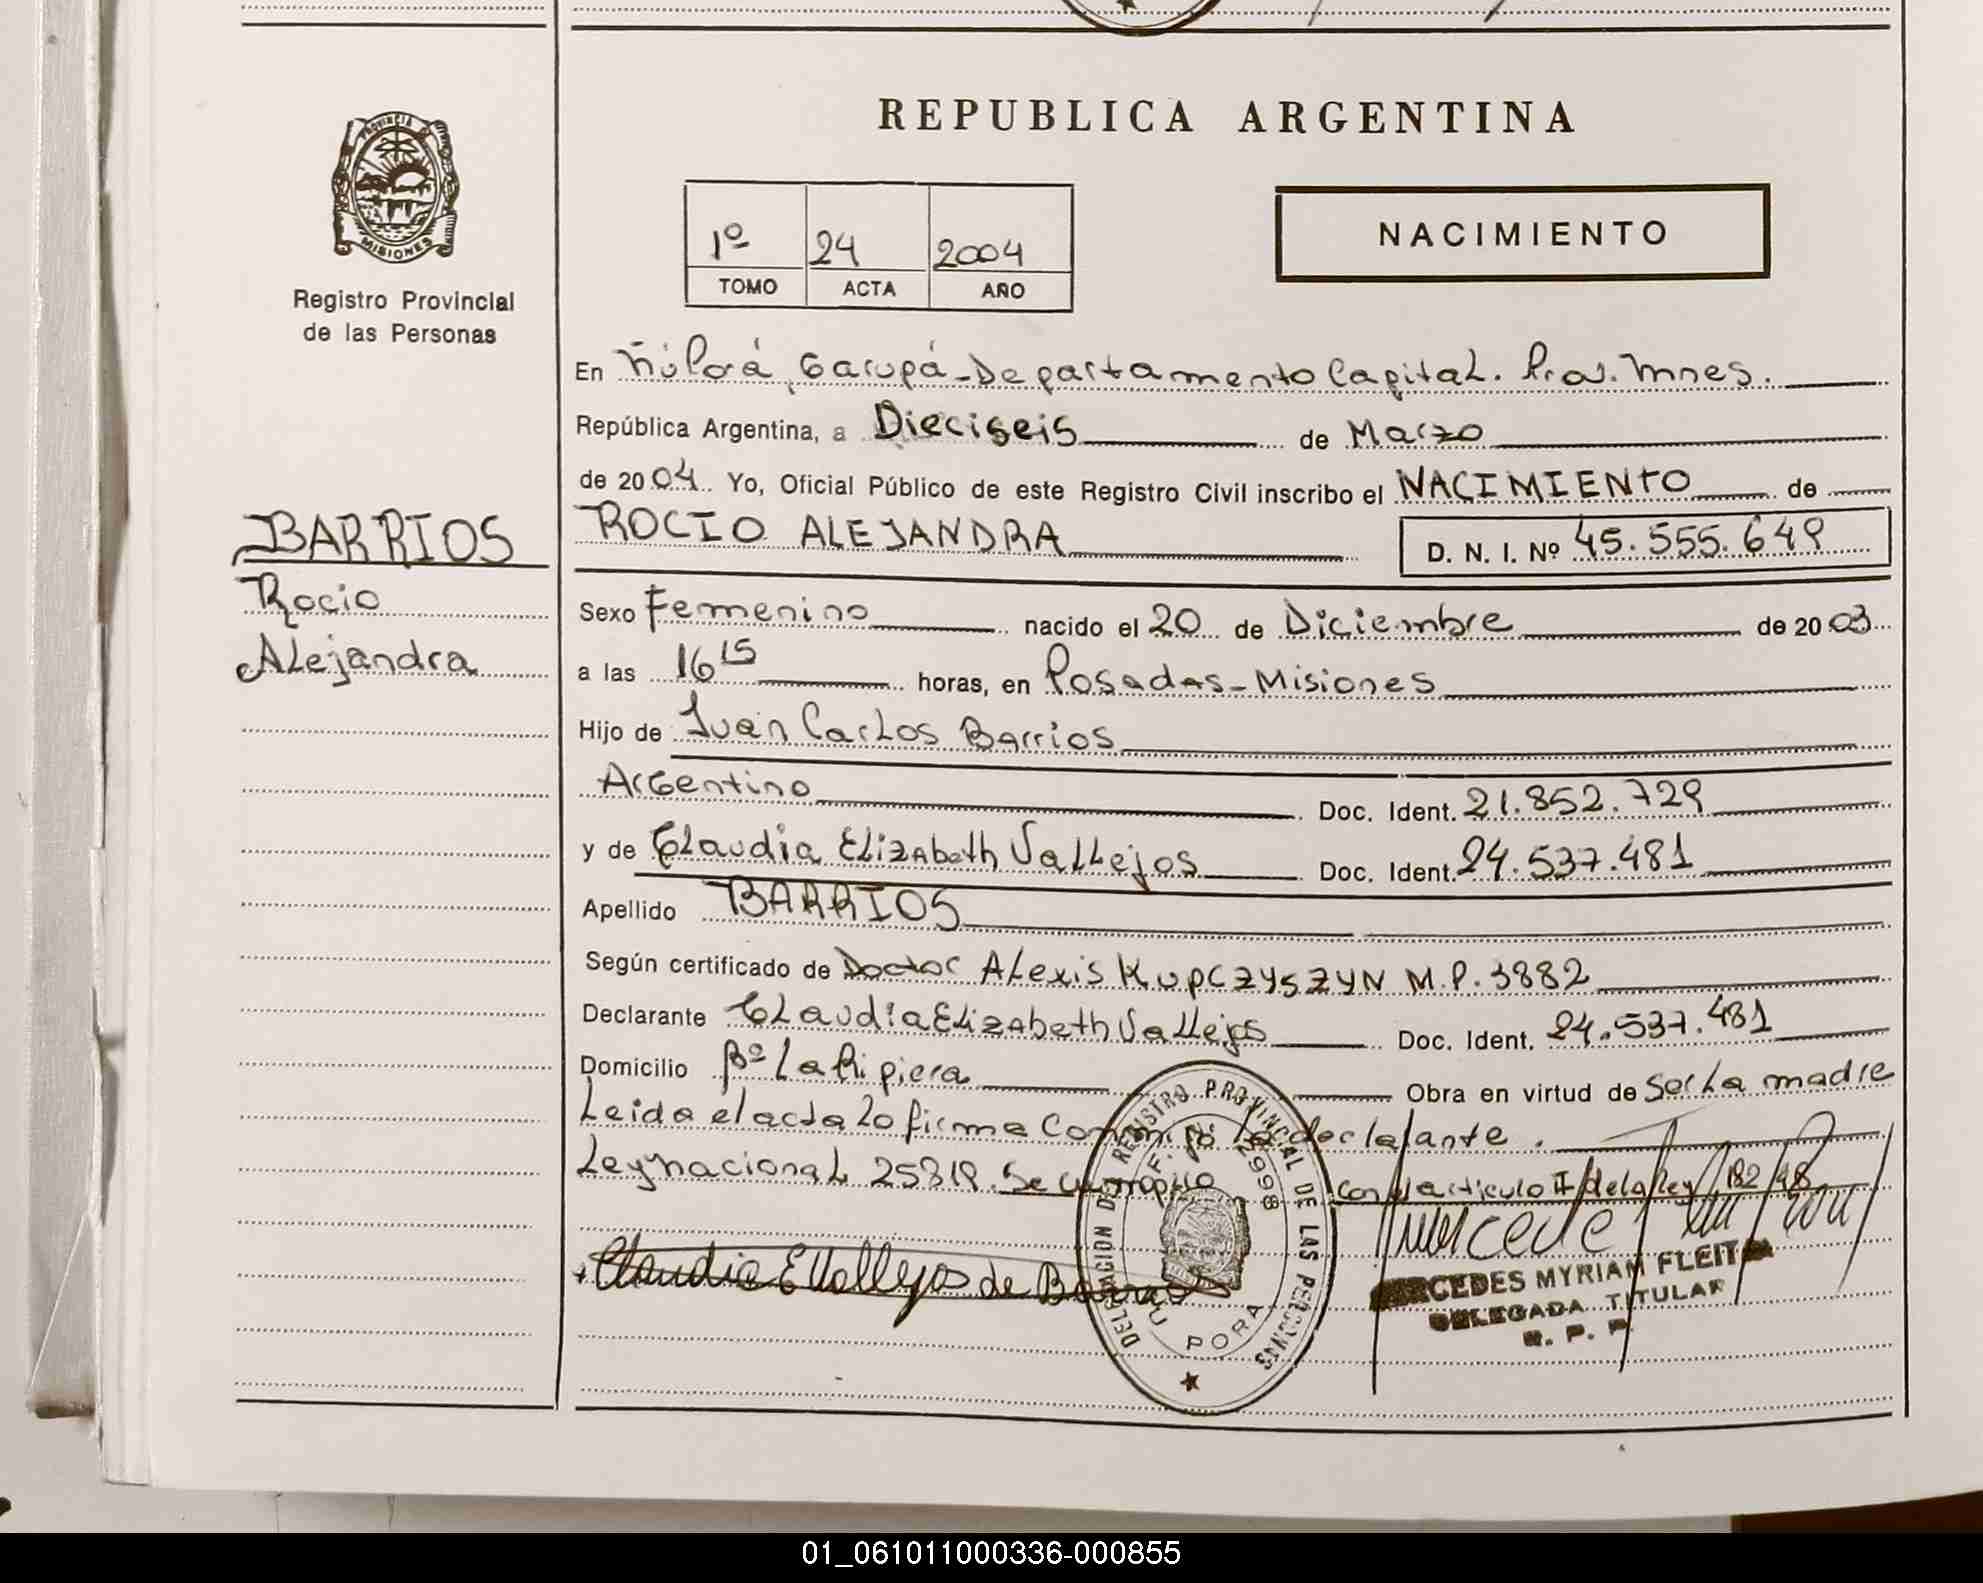 REPUBLICA ARGENTINA
PROVINCIA DE MISIONES
Registro Provincial
de las Personas
1º 24 2004
TOMO ACTA AÑO
NACIMIENTO
En Ñú Porá, Garupá - Departamento Capital. Prov. Mnes.
República Argentina, a Dieciseis de Marzo
de 2004. Yo, Oficial Público de este Registro Civil inscribo el NACIMIENTO de
BARRIOS
Rocio
Alejandra
ROCIO ALEJANDRA D. N. I. Nº 45.555.649
Sexo Femenino nacido el 20 de Diciembre de 2003
a las 16 15 horas, en Posadas - Misiones
Hijo de Juan Carlos Barrios
Argentino Doc. Ident. 21.852.729
y de Claudia Elizabeth Vallejos Doc. Ident. 24.537.481
Apellido BARRIOS
Según certificado de Doctor Alexis KUPCZYSZYN M.P. 3882
Declarante Claudia Elizabeth Vallejos Doc. Ident. 24.537.481
Domicilio Bº La Ripiera Obra en virtud de Ser La madre
Leida el acta La firma Conmigo la declarante.
Ley nacional 25819. Se con el articulo II de la ley
Claudia E Vallejos de Barrios
DELEGACION DE REGISTRO PROVINCIAL DE LAS PERSONAS
2998
ÑU PORA
MERCEDES MYRIAM FLEITA
DELEGADA TITULAR
R. P. P.
01_061011000336-000855